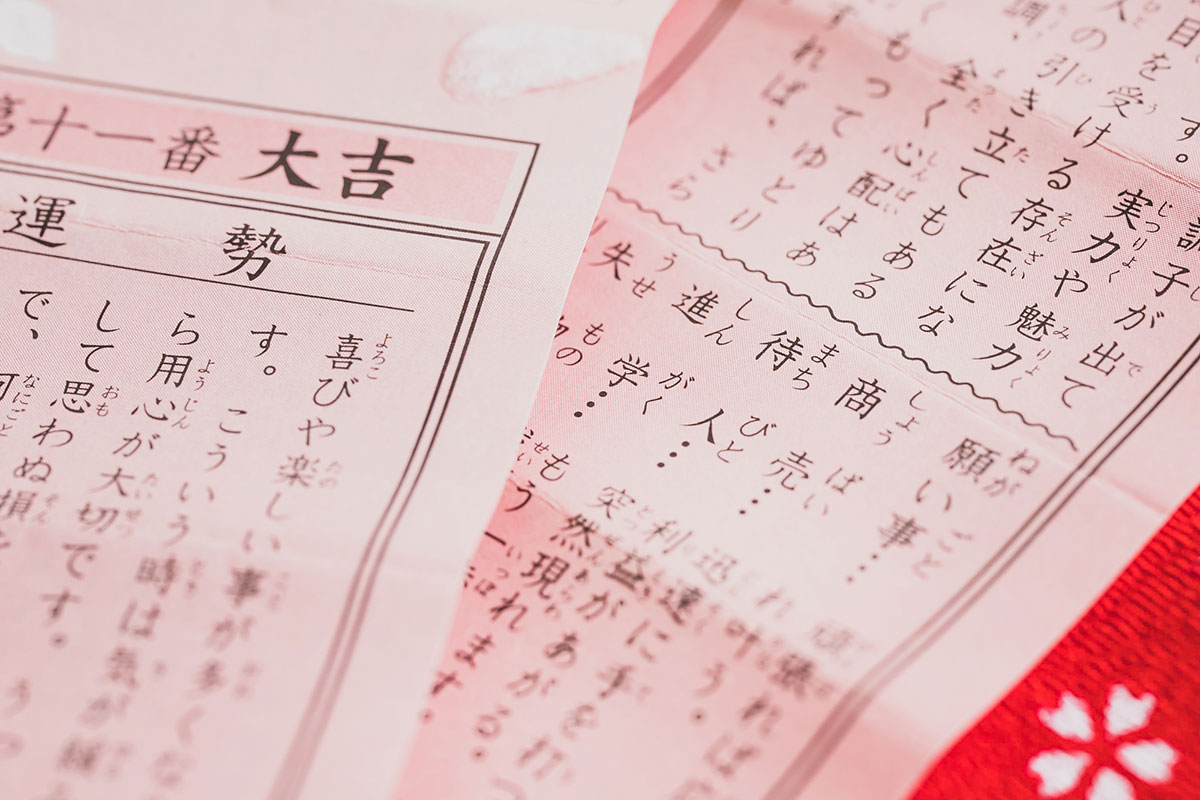 第十一番 大吉
運勢
喜びや楽しい事が多くな
す。こういう時は気が緩
ら用心が大切です。う
して思わぬ損
で、何
調子が出て
す。実力や魅力
目を受ける存在にな
人の引き立てもある
調、全く心配はあ
くもってゆとり
すれば、さら
願い事…頑張れば
れ叶う。
商売…迅速に手を打つ
利益があがる。
待人…突然現れます。
進学…もう一
失せ物